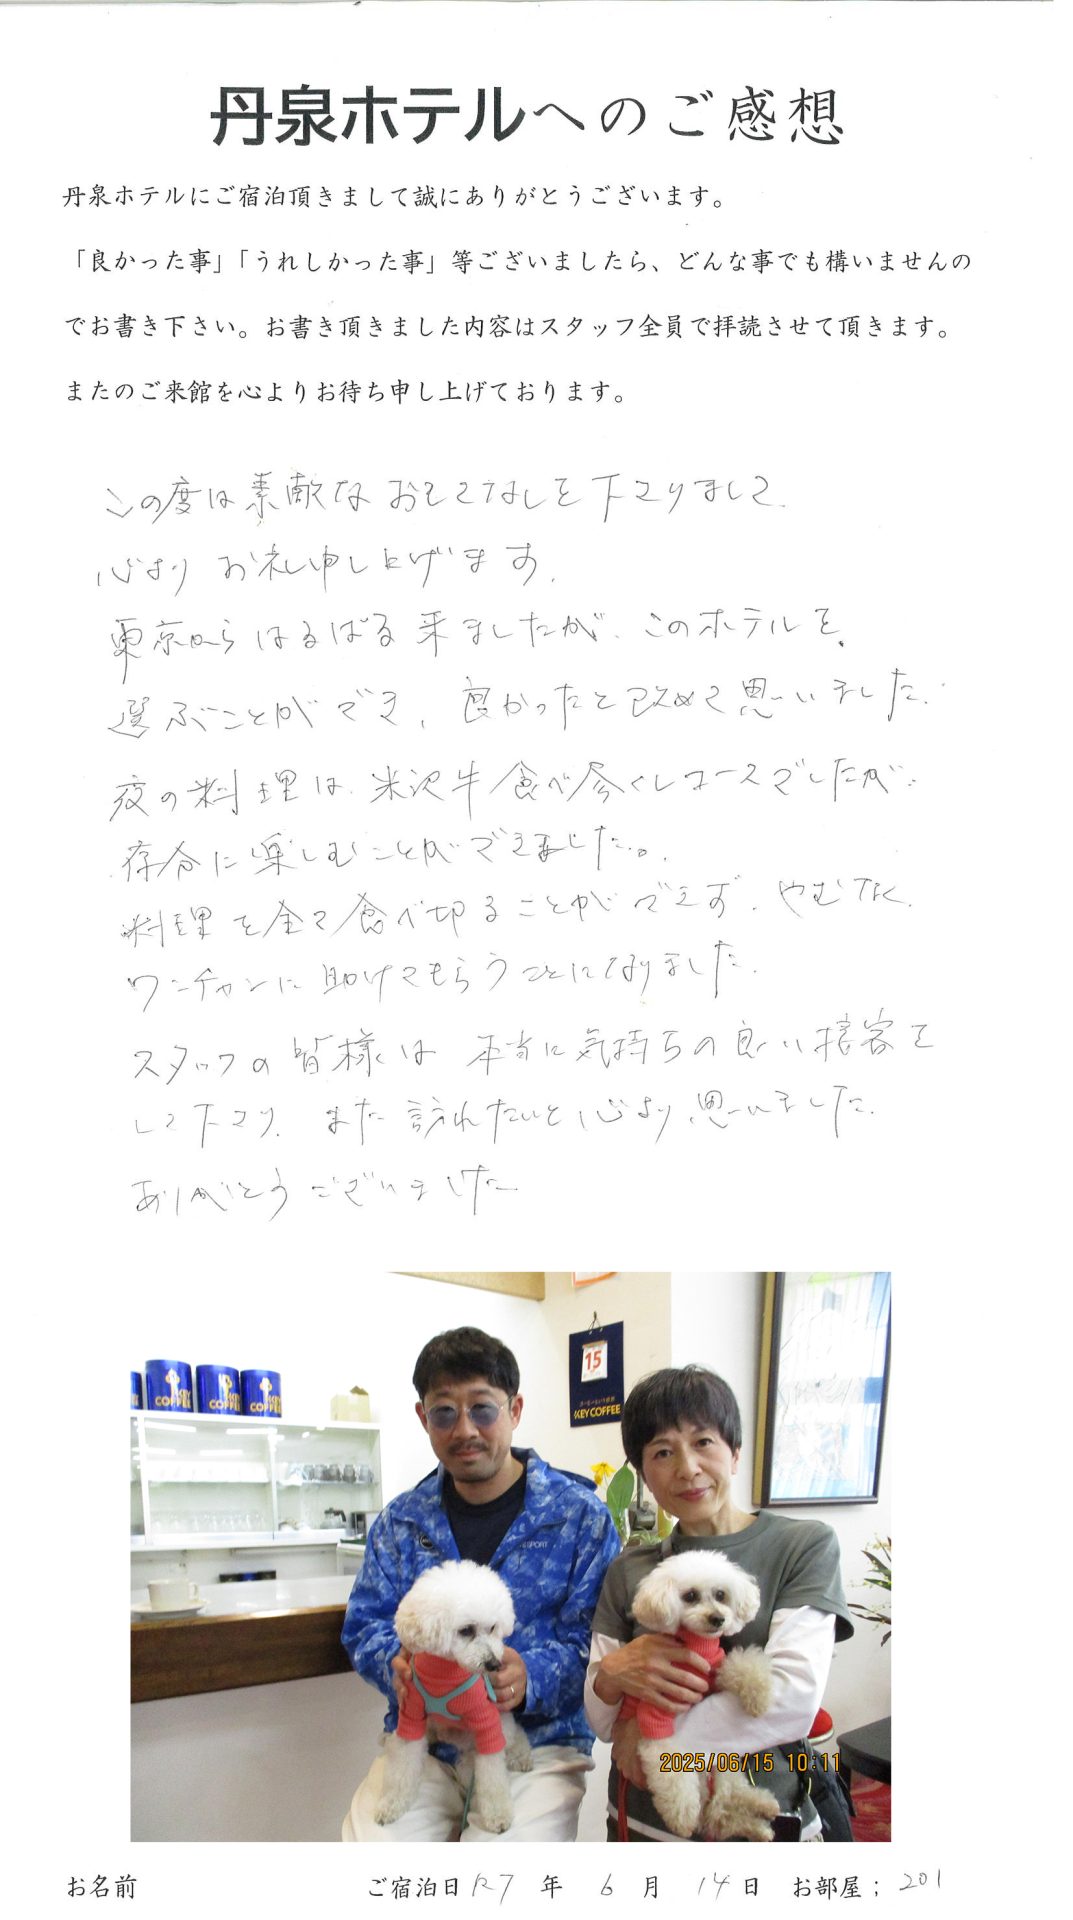 丹泉ホテルへのご感想
丹泉ホテルにご宿泊頂きまして誠にありがとうございます。
「良かった事」「うれしかった事」等ございましたら、どんな事でも構いませんの
でお書き下さい。お書き頂きました内容はスタッフ全員で拝読させて頂きます。
またのご来館を心よりお待ち申し上げております。
この度は素敵なおもてなしを下さりまして
心よりお礼申し上げます。
東京からはるばる来ましたが、このホテルを、
選ぶことができ、良かったと改めて思いました。
夜の料理は、米沢牛食べ尽くしコースでしたが、
存分に楽しむことができました。
料理を全て食べ切ることができず、やむなく、
ワンチャンに助けてもらうことになりました。
スタッフの皆様は本当に気持ちの良い接客を
して下さり、また訪れたいと心より思いました。
ありがとうございました
KEY COFFEE
KEY COFFEE
KEY COFFEE
15
KEY COFFEE
SPORT
2025/06/15 10:11
お名前 ご宿泊日 R7 年 6 月 14 日 お部屋; 201